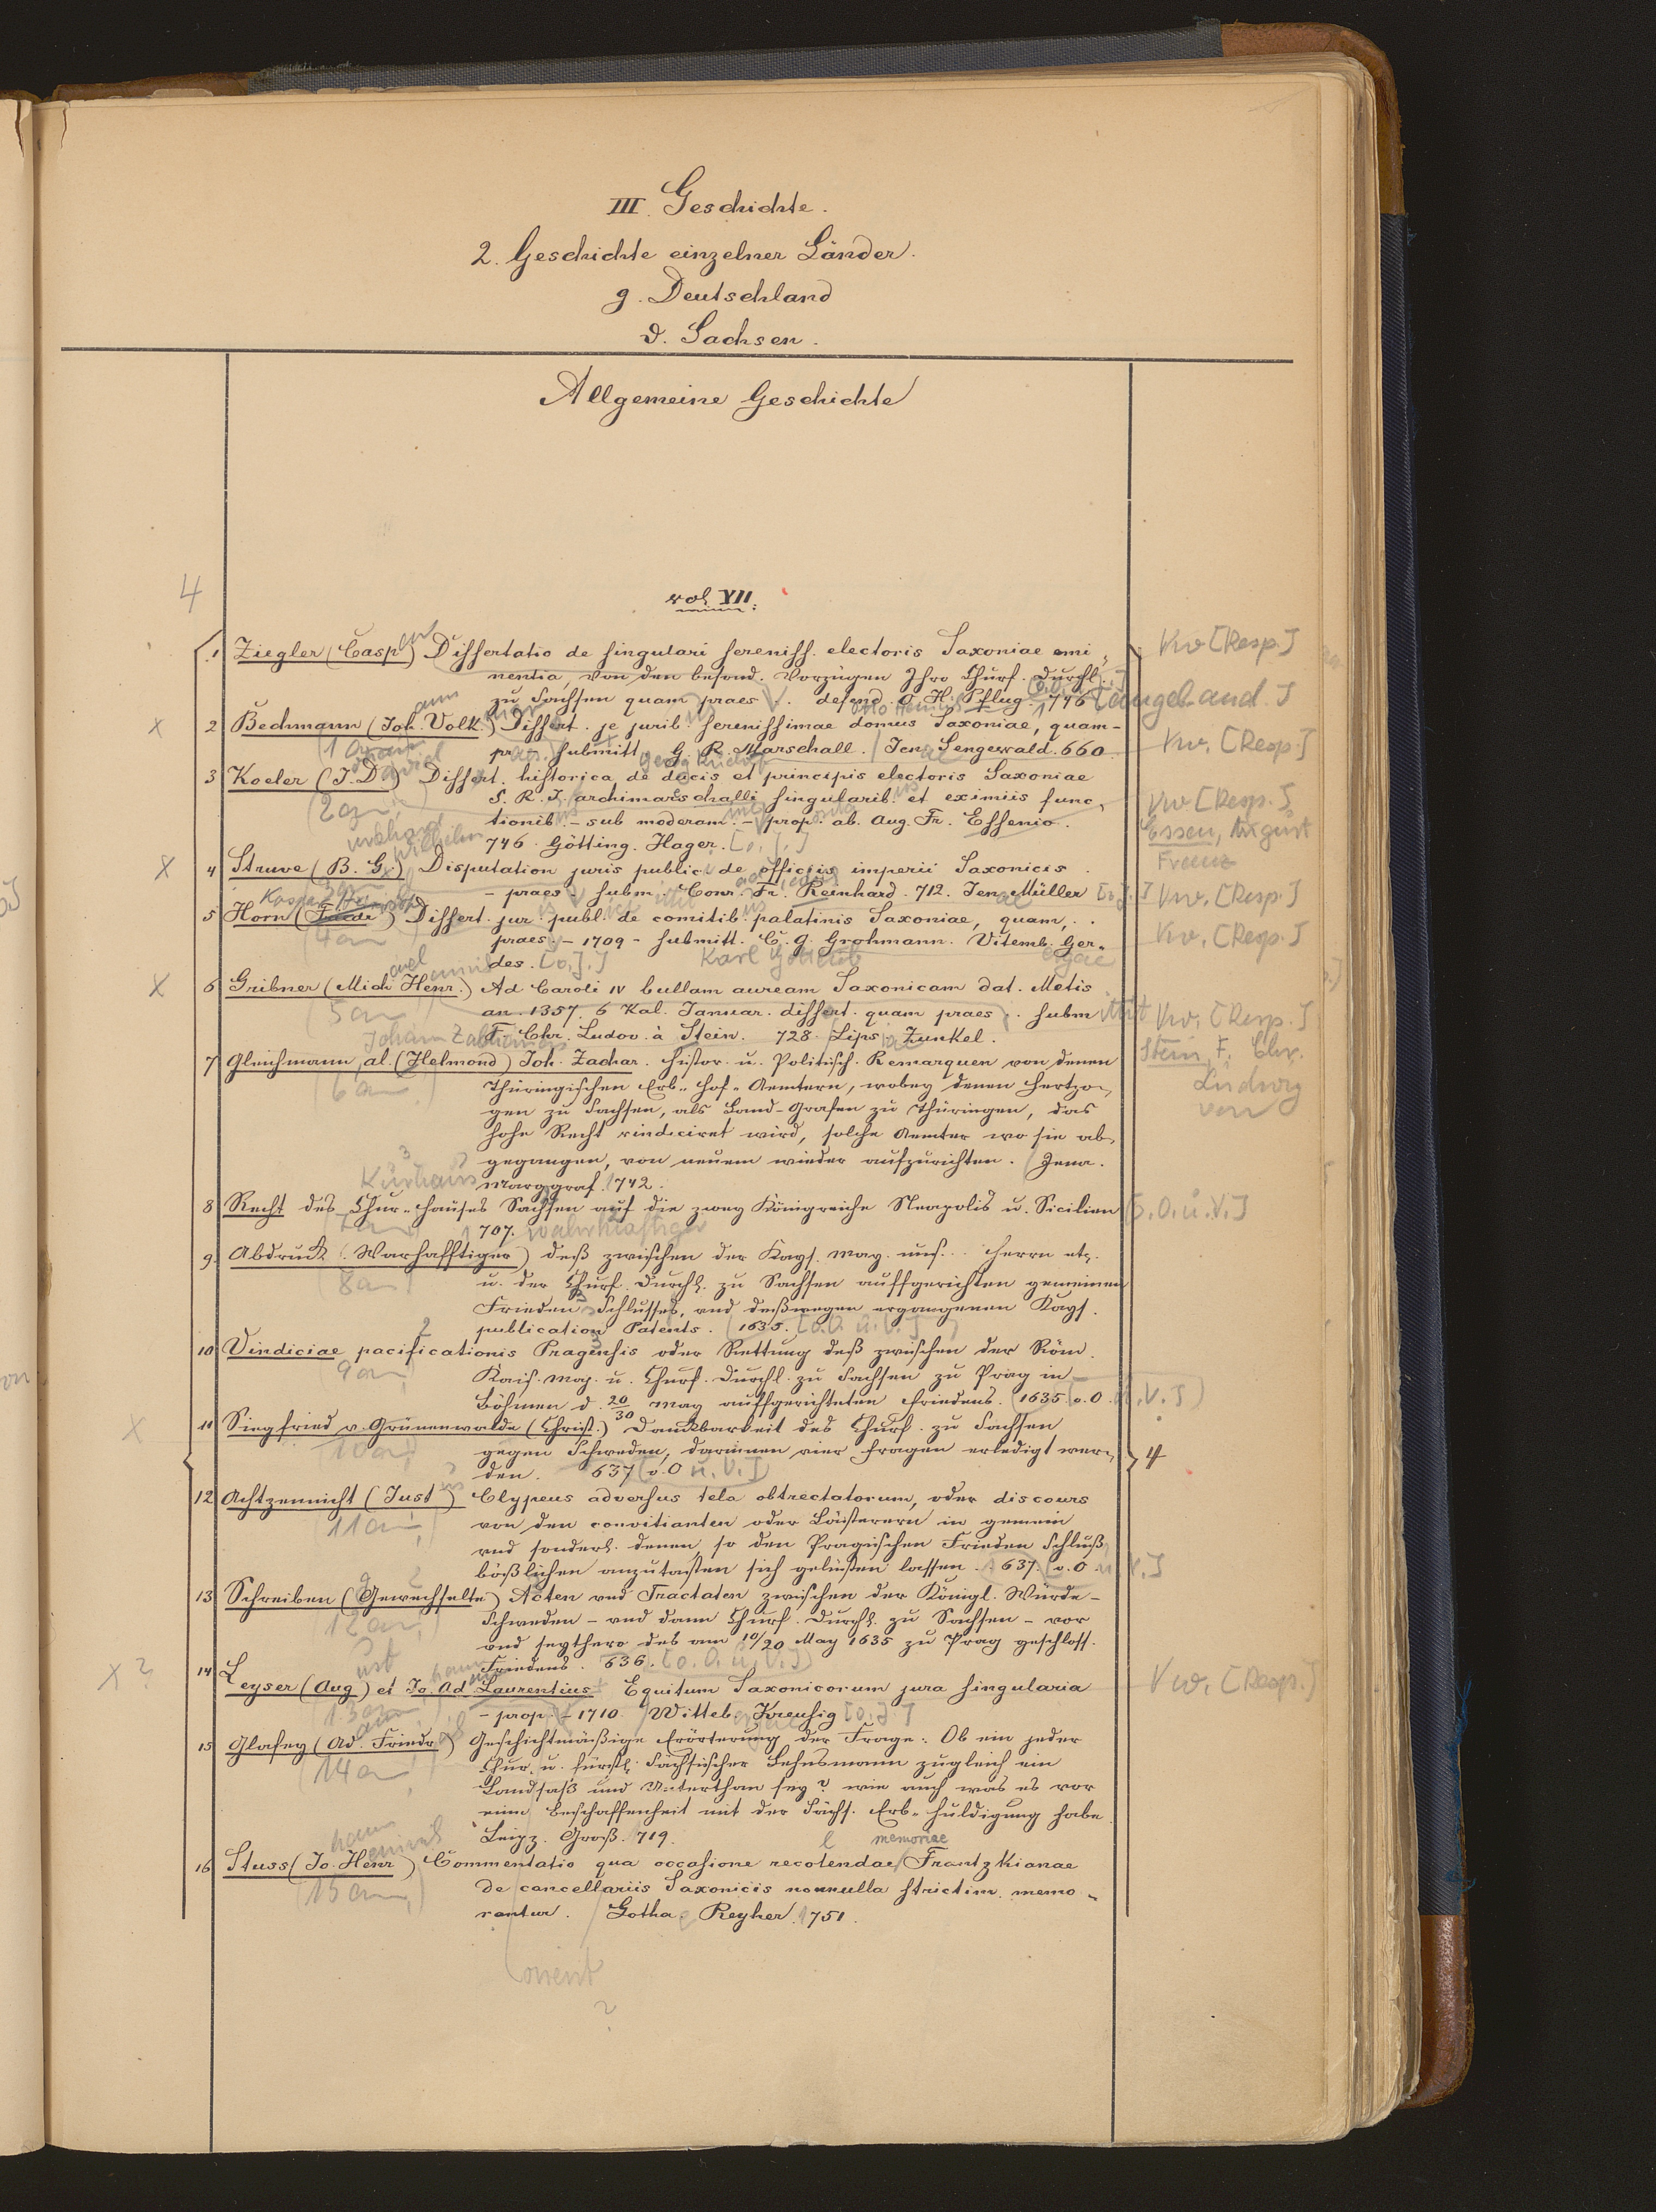 III. Geschichte.
2. Geschichte einzelner Länder.
g. Deutschland
d. Sachsen.
Allgemeine Geschichte
4
vol. VII.
1 Ziegler (Casp) Dissertatio de singulari sereniss. electoris Saxoniae emi- Vw [Resp.]
nentia, von den besond. Vorzügen Ihro Churf. Durchl.
zu Sachsen quam praes. defend. O. H. Pflug. 1746
x 2 Bechmann (Joh. Volk.) Dissert. je jurib. serenissimae domus Saxoniae, quam- Vw. [Resp.]
(1 an)
pr. submitt. G. R. Marschall. Jen. Sengewald. 660.
3 Koeler (J. D.) Dissert. historica de docis et principis electoris Saxoniae
(2 an)
S. R. J. archimarschalli singularib. et eximiis func- Vw [Resp.]
tionib. - sub moderam. - prop. ab. Aug. Fr. Essenio. Essen, August
746. Götting. Hager. [o. J.] Franz
x 4 Struve (B. G.) Disputation juris public. de officiis imperii Saxonicis
(3 an)
- praes. subm. Conr. Fr. Reinhard. 712. Jen. Müller [o. J.] Vw. [Resp.]
5 Horn (Friedr.) Dissert. jur. publ. de comitib. palatinis Saxoniae, quam,
(4 an)
praes. - 1709 - submitt. C. G. Grohmann. Vitemb. Ger- Vw. [Resp.]
des. [o. J.] Karl Gottlieb
x 6 Gribner (Mich. Henr.) Ad Caroli IV bullam auream Saxonicam dat. Metis
(5 an)
an. 1357. 6 Kal. Januar. dissert. quam praes. subm Vw. [Resp.]
F. Chr. Ludov. à Stein. 728. Lips. Zunkel. Stein, F. Chr.
Ludwig
von
7 Gleichmann, al. (Helmond) Joh. Zachar. Histor. u. Politisch. Remarquen von denen
(6 an)
Thüringischen Erb-Hof-Aemtern, wobey denen Hertzo-
gen zu Sachsen, als Land-Grafen zu Thüringen, das
hohe Recht vindiciret wird, solche Aemter wo sie ab-
gegangen, von neuem wieder aufzurichten. Jena.
Marggraf. 742.
8 Recht des Chur-Hauses Sachsen auf die zwey Königreiche Neapolis u. Sicilien [o. O. u. V.]
707. Wahrhaftiger
9. Abdruck (Warhafftiger) deß zwischen der Kays. May. uns. Herrn etc.
(8 an)
u. der Churf. Durchl. zu Sachsen auffgerichten gemeinen
Frieden Schlusses, und deßwegen ergangenen Kays.
publication Patents. 1635. [o. O. u. V.]
10 Vindiciae pacificationis Pragensis oder Rettung deß zwischen der Röm.
(9 an)
Kais. May. u. Churf. Durchl. zu Sachsen zu Prag in
Böhmen d. 20/30 May auffgerichteten Friedens. 1635. [o. O. u. V.]
x 11 Siegfried v. Grünenwalde (Christ.) Danckbarkeit des Churf. zu Sachsen
(10 an)
gegen Schweden, darinnen vier Fragen erledigt wer- 4
den. 637 [o. O u. V.]
12 Achtzennicht (Just) Clypeus adversus tela obtrectatorum, oder discours
(11 an)
von den convitianten oder Lästerern in gemein
und sonderl. denen, so den Pragischen Frieden Schluß
bößlichen anzutasten sich gelüsten lassen. 637. [o. O. u. V.]
13 Schreiben (Gewechselte) Acten und Tractaten zwischen der Königl. Würde-
(12 an)
Schweden - und dann Churf. Durchl. zu Sachsen - vor
und seythero des am 10/20 May 1635 zu Prag geschloss.
Friedens. 636. [o. O. u. V.]
x? 14 Leyser (Aug) et Jo. Ad. Laurentius Equitum Saxonicorum jura singularia Vw. [Resp.]
(13 an)
- prop. - 1710. Witteb. Kreusig [o. J.]
15 Glafey (Ad. Friedr.) Geschichtmäßige Erörterung der Frage: Ob ein jeder
(14 an)
Chur. u. fürstl. Sächsischer Lehnsmann zugleich ein
Landsaß und Unterthan sey? wie auch was es vor
eine Beschaffenheit mit der Sächs. Erb-Huldigung habe.
Leipz. Groß. 719.
l memoriae
16 Stuss (Jo. Henr.) Commentatio qua occasione recotendae Frantzkianae
(15 an)
de cancellariis Saxonicis nonnulla strictim. memo-
rantur. Gotha. Reyher. 751.
?